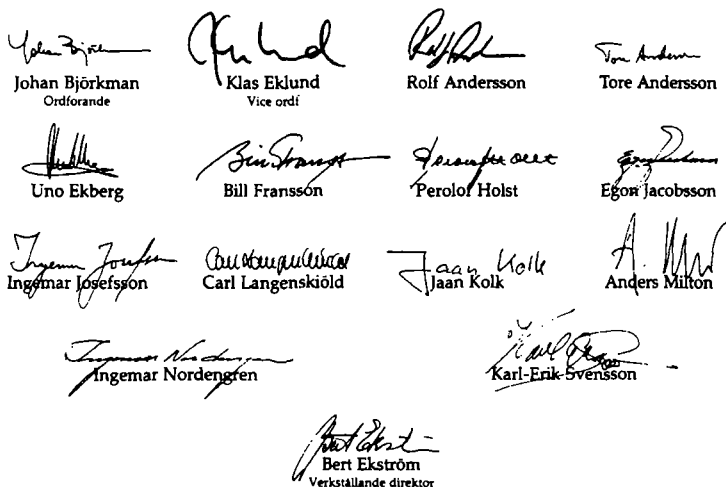 Johan Björkman Klas Eklund Rolf Andersson Tore Andersson
Ordforande Vice ordf
Uno Ekberg Bill Fransson Perolof Holst Egon Jacobsson
Jaan Kolk
Ingemar Josefsson Carl Langenskiöld Jaan Kolk Anders Milton
Ingemar Nordengren Karl-Erik Svensson
Bert Ekström
Verkställande direktor